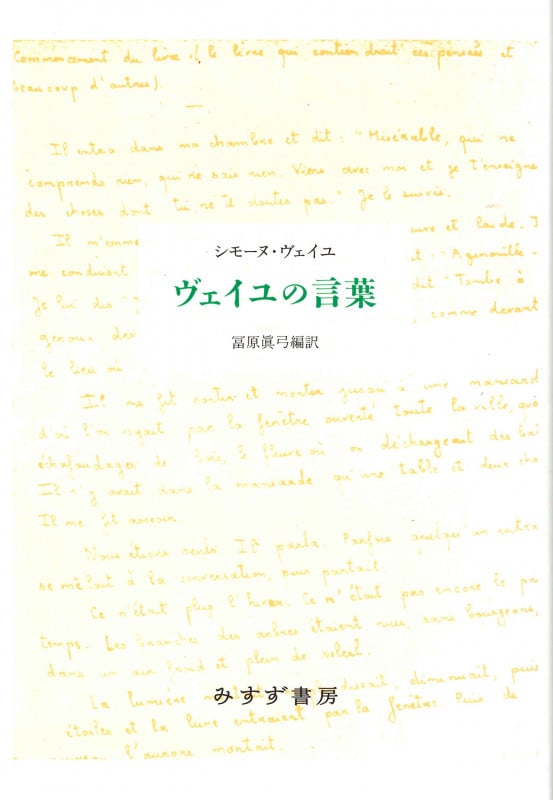 Commencement du livre. (le livre qui contiendrait ces pensées et
beaucoup d'autres).
Il entra dans ma chambre et dit : "Misérable, qui ne
comprends rien, qui ne sais rien. Viens avec moi et je t'enseignerai
des choses dont tu ne te doutes pas." Je le suivis.
Il m'emme
シモーヌ・ヴェイユ
me conduisit
"Agenouille-
ヴェイユの言葉
Je lui dis
dit "Tombe à
genoux dev
comme devant
冨原眞弓編訳
le lieu où
Il me fit sortir et monter jusqu'à une mansard
d'où l'on voyait par la fenêtre ouverte toute la ville, quel
échafaudages de bois, le fleuve où on déchargeait des ba
Il n'y avait dans la mansarde qu'une table et deux cha
Il me fit asseoir.
Nous étions seuls. Il parla. Parfois quelqu'un entra
se mêlait à la conversation, puis partait.
Ce n'était plus l'hiver. Ce n'était pas encore le prin
temps. Les branches des arbres étaient nues, sans bourgeons,
dans un air froid et plein de soleil.
La lumière
diminuait, puis
みすず書房
étoiles et la lune entraient par la fenêtre. Puis de
l'aurore montait.